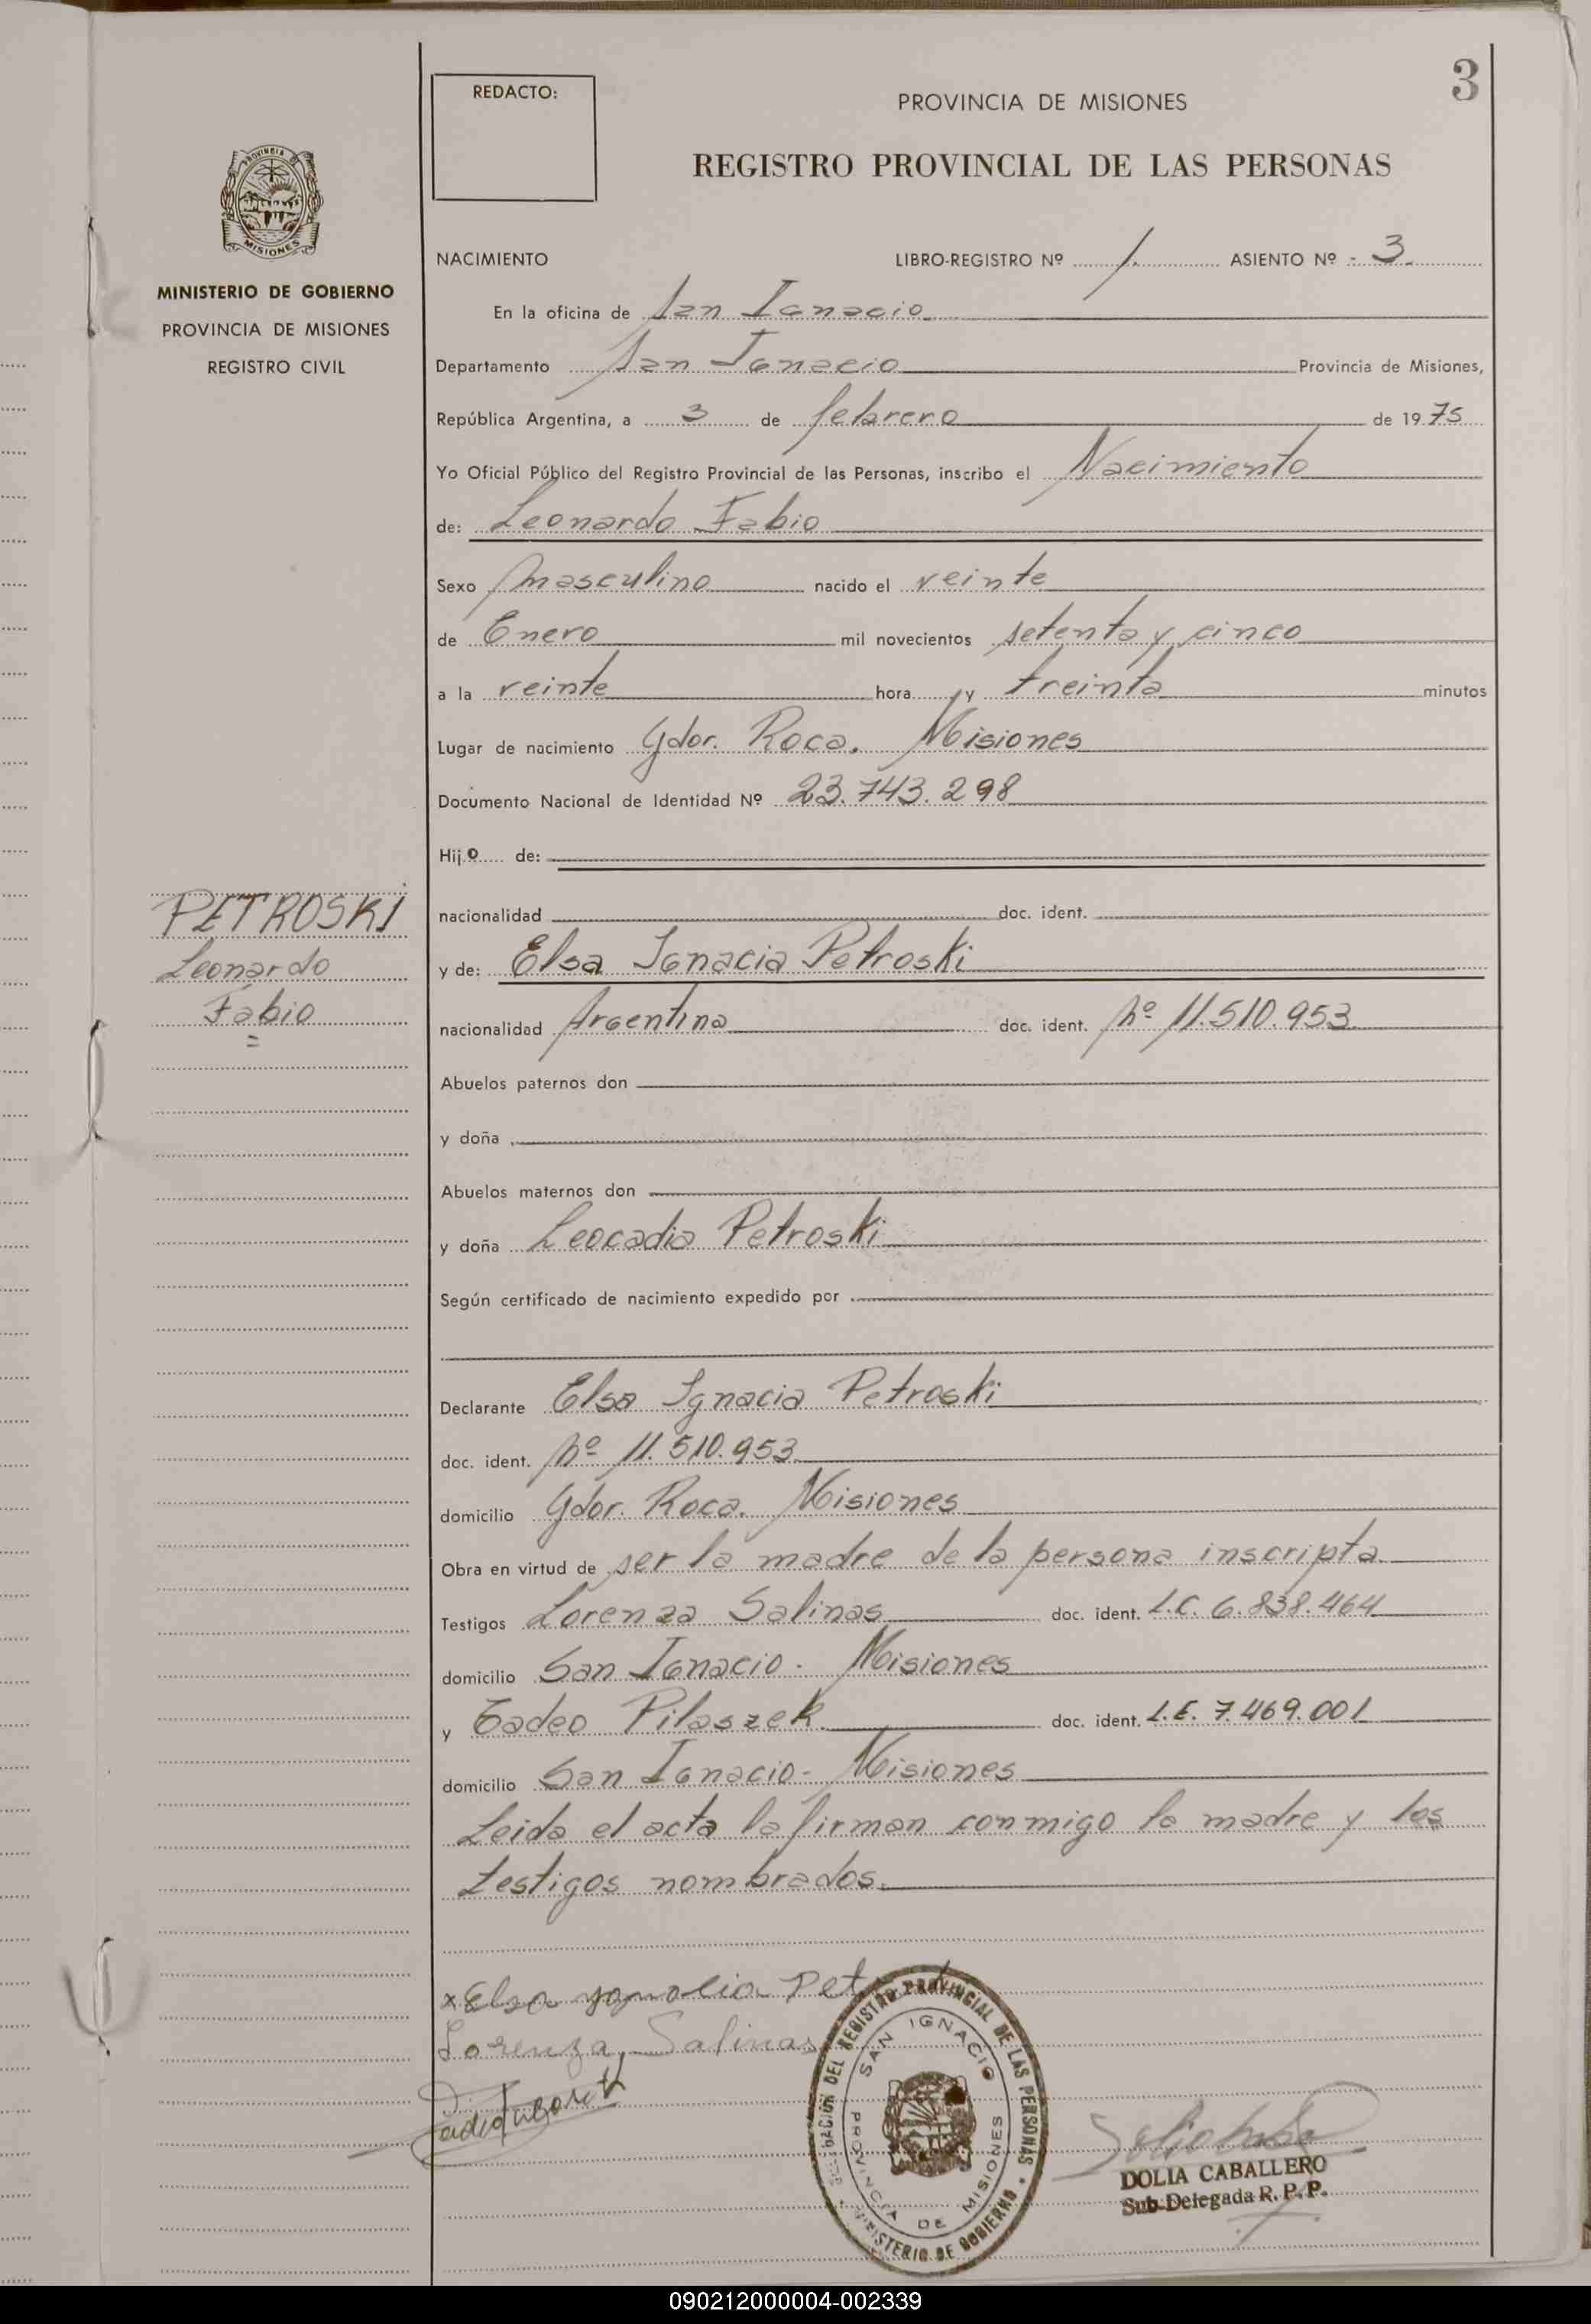 3
REDACTO:
PROVINCIA DE MISIONES
REGISTRO PROVINCIAL DE LAS PERSONAS
PROVINCIA
MISIONES
MINISTERIO DE GOBIERNO
PROVINCIA DE MISIONES
REGISTRO CIVIL
NACIMIENTO LIBRO-REGISTRO Nº 1. ASIENTO Nº - 3.
En la oficina de San Ignacio
Departamento San Ignacio Provincia de Misiones,
República Argentina, a 3 de febrero de 1975
Yo Oficial Público del Registro Provincial de las Personas, inscribo el Nacimiento
de: Leonardo Fabio
Sexo masculino nacido el veinte
de Enero mil novecientos setenta y cinco
a la veinte hora y treinta minutos
Lugar de nacimiento Gdor. Roca. Misiones
Documento Nacional de Identidad Nº 23.743.298
Hijo de:
nacionalidad doc. ident.
PETROSKI
Leonardo
Fabio
y de: Elsa Ignacia Petroski
nacionalidad Argentina doc. ident. Nº 11.510.953
Abuelos paternos don
y doña
Abuelos maternos don
y doña Leocadia Petroski
Según certificado de nacimiento expedido por
Declarante Elsa Ignacia Petroski
doc. ident. Nº 11.510.953
domicilio Gdor. Roca. Misiones
Obra en virtud de ser la madre de la persona inscripta.
Testigos Lorenza Salinas doc. ident. L.C. 6.838.464
domicilio San Ignacio - Misiones
y Tadeo Pilaszek doc. ident. L.E. 7.469.001
domicilio San Ignacio - Misiones
Leida el acta la firman conmigo la madre y los
testigos nombrados.
x Elsa Pet
Lorenza Salinas
DEL REGISTRO PROVINCIAL DE LAS PERSONAS
MINISTERIO DE GOBIERNO
SAN IGNACIO
PROVINCIA DE MISIONES
DOLIA CABALLERO
Sub-Delegada R. P. P.
090212000004-002339